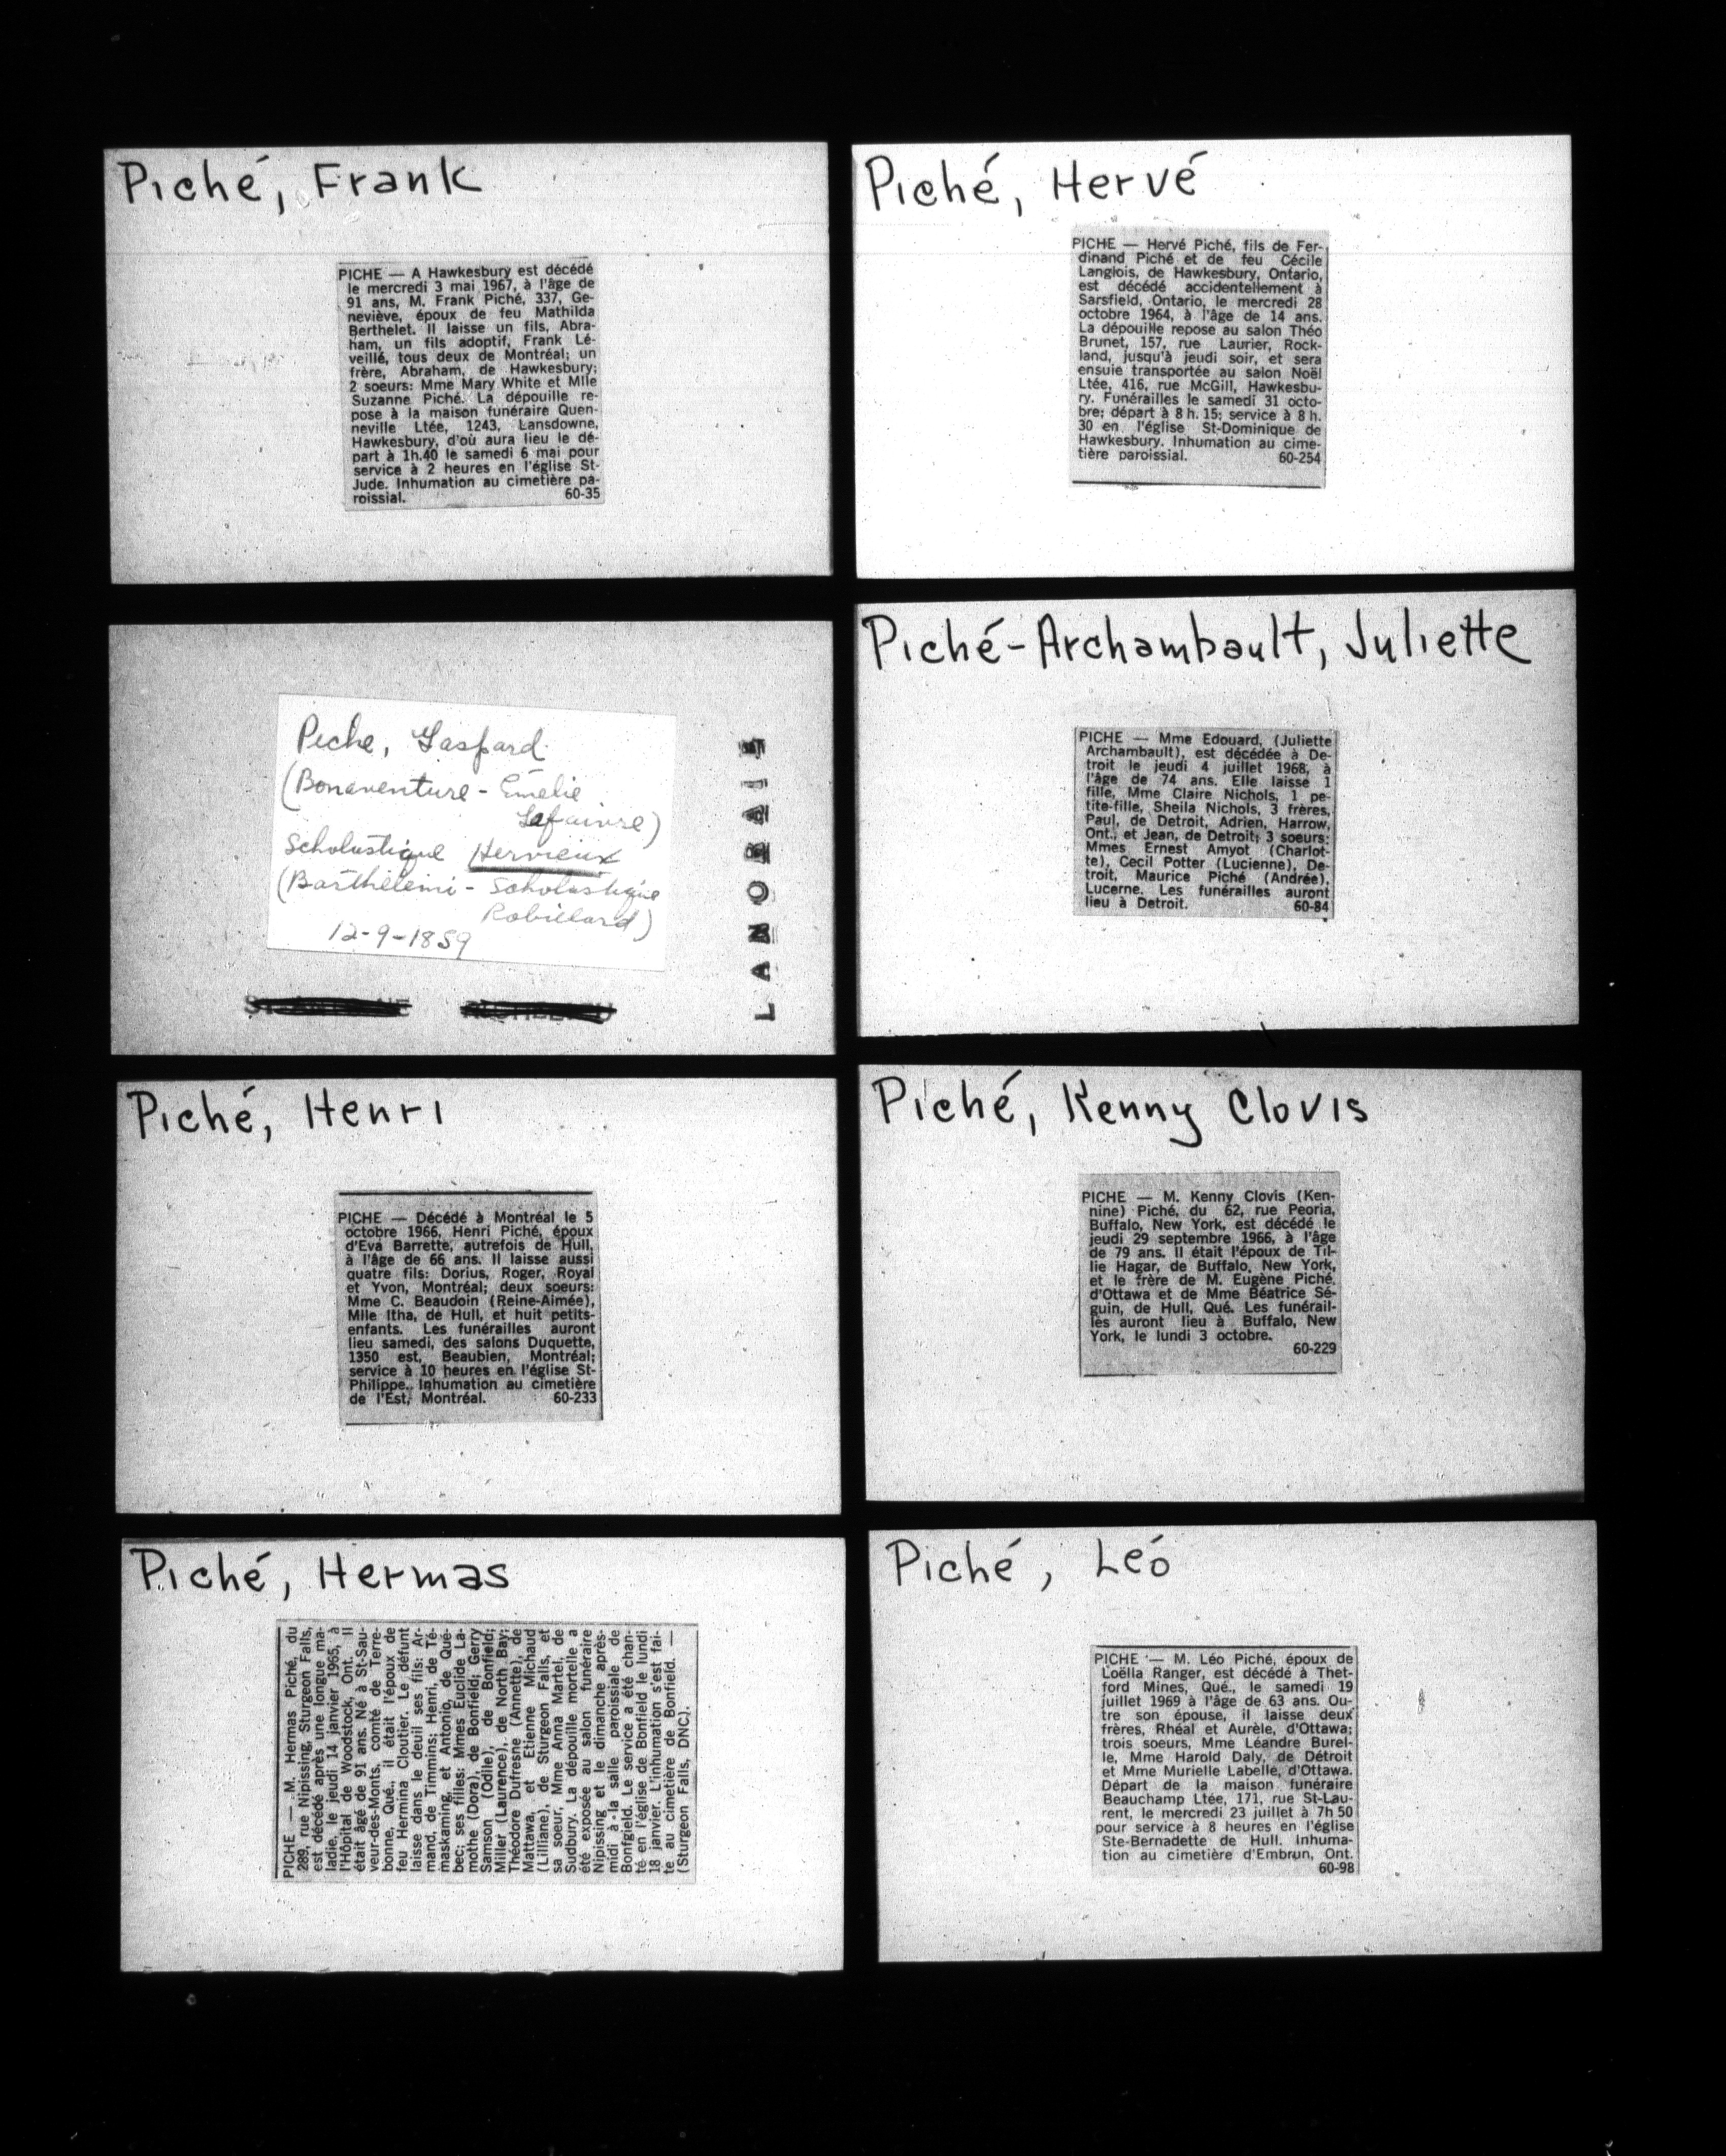 Piché, Frank
PICHE — A Hawkesbury est décédé
le mercredi 3 mai 1967, à l'âge de
91 ans, M. Frank Piché, 337, Ge-
neviève, époux de feu Mathilda
Berthelet. Il laisse un fils, Abra-
ham, un fils adoptif, Frank Lé-
veillé, tous deux de Montréal; un
frère, Abraham, de Hawkesbury;
2 soeurs: Mme Mary White et Mlle
Suzanne Piché. La dépouille re-
pose à la maison funéraire Quen-
neville Ltée, 1243, Lansdowne,
Hawkesbury, d'où aura lieu le dé-
part à 1h.40 le samedi 6 mai pour
service à 2 heures en l'église St-
Jude. Inhumation au cimetière pa-
roissial. 60-35
Piche, Gaspard
(Bonaventure - Emélie
Lafaivre)
Scholastique Hervieux
(Barthélemi - Scholastique
Robillard)
12-9-1859
LANORAIE
Piché, Henri
PICHE — Décédé à Montréal le 5
octobre 1966, Henri Piché, époux
d'Eva Barrette, autrefois de Hull,
à l'âge de 66 ans. Il laisse aussi
quatre fils: Dorius, Roger, Royal
et Yvon, Montréal; deux soeurs:
Mme C. Beaudoin (Reine-Aimée),
Mlle Itha, de Hull, et huit petits-
enfants. Les funérailles auront
lieu samedi, des salons Duquette,
1350 est, Beaubien, Montréal;
service à 10 heures en l'église St-
Philippe. Inhumation au cimetière
de l'Est, Montréal. 60-233
Piché, Hermas
PICHE — M. Hermas Piché, du
289, rue Nipissing, Sturgeon Falls,
est décédé après une longue ma-
ladie, le jeudi 14 janvier 1965, à
l'Hôpital de Woodstock, Ont. Il
était âgé de 91 ans. Né à St-Sau-
veur-des-Monts, comté de Terre-
bonne, Qué., il était l'époux de
feu Hermina Cloutier. Le défunt
laisse dans le deuil ses fils: Ar-
mand, de Timmins; Henri, de Té-
maskaming, et Antonio, de Qué-
bec; ses filles: Mmes Euclide La-
mothe (Dora), de Bonfield; Gerry
Samson (Odile), de Bonfield;
Miller (Laurence), de North Bay;
Théodore Dufresne (Annette), de
Mattawa, et Etienne Michaud
(Lilliane), de Sturgeon Falls, et
sa soeur, Mme Anna Martel, de
Sudbury. La dépouille mortelle a
été exposée au salon funéraire
Nipissing et le dimanche après-
midi à la salle paroissiale de
Bonfgield. Le service a été chan-
té en l'église de Bonfield le lundi
18 janvier. L'inhumation s'est fai-
te au cimetière de Bonfield. —
(Sturgeon Falls, DNC).
Piché, Hervé
PICHE — Hervé Piché, fils de Fer-
dinand Piché et de feu Cécile
Langlois, de Hawkesbury, Ontario,
est décédé accidentellement à
Sarsfield, Ontario, le mercredi 28
octobre 1964, à l'âge de 14 ans.
La dépouille repose au salon Théo
Brunet, 157, rue Laurier, Rock-
land, jusqu'à jeudi soir, et sera
ensuie transportée au salon Noël
Ltée, 416, rue McGill, Hawkesbu-
ry. Funérailles le samedi 31 octo-
bre; départ à 8 h. 15; service à 8 h.
30 en l'église St-Dominique de
Hawkesbury. Inhumation au cime-
tière paroissial. 60-254
Piché-Archambault, Juliette
PICHE — Mme Edouard, (Juliette
Archambault), est décédée à De-
troit le jeudi 4 juillet 1968, à
l'âge de 74 ans. Elle laisse 1
fille, Mme Claire Nichols, 1 pe-
tite-fille, Sheila Nichols, 3 frères,
Paul, de Detroit, Adrien, Harrow,
Ont., et Jean, de Detroit; 3 soeurs:
Mmes Ernest Amyot (Charlot-
te), Cecil Potter (Lucienne), De-
troit, Maurice Piché (Andrée),
Lucerne. Les funérailles auront
lieu à Detroit. 60-84
Piché, Kenny Clovis
PICHE — M. Kenny Clovis (Ken-
nine) Piché, du 62, rue Peoria,
Buffalo, New York, est décédé le
jeudi 29 septembre 1966, à l'âge
de 79 ans. Il était l'époux de Til-
lie Hagar, de Buffalo, New York,
et le frère de M. Eugène Piché,
d'Ottawa et de Mme Béatrice Sé-
guin, de Hull, Qué. Les funérail-
les auront lieu à Buffalo, New
York, le lundi 3 octobre.
60-229
Piché, Léo
PICHE — M. Léo Piché, époux de
Loëlla Ranger, est décédé à Thet-
ford Mines, Qué., le samedi 19
juillet 1969 à l'âge de 63 ans. Ou-
tre son épouse, il laisse deux
frères, Rhéal et Aurèle, d'Ottawa;
trois soeurs, Mme Léandre Burel-
le, Mme Harold Daly, de Détroit
et Mme Murielle Labelle, d'Ottawa.
Départ de la maison funéraire
Beauchamp Ltée, 171, rue St-Lau-
rent, le mercredi 23 juillet à 7h 50
pour service à 8 heures en l'église
Ste-Bernadette de Hull. Inhuma-
tion au cimetière d'Embrun, Ont.
60-98